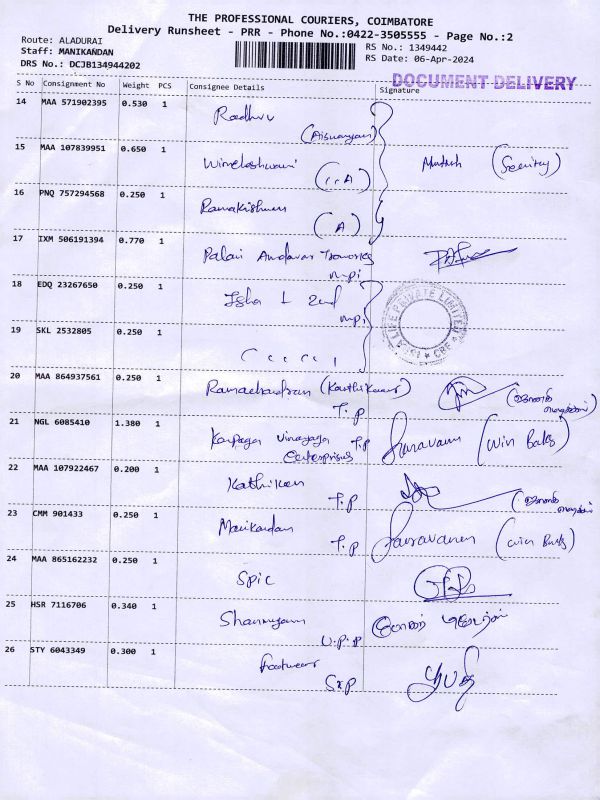 THE PROFESSIONAL COURIERS, COIMBATORE
Delivery Runsheet - PRR - Phone No.:0422-3505555 - Page No.:2
Route: ALADURAI
Staff: MANIKANDAN
DRS No.: DCJB134944202
RS No.: 1349442
RS Date: 06-Apr-2024
DOCUMENT DELIVERY
S No Consignment No Weight PCS Consignee Details Signature
14 MAA 571902395 0.530 1 Radhu
15 MAA 107839951 0.650 1 (Security)
16 PNQ 757294568 0.250 1 Ramakrishnan
(A)
17 IXM 506191394 0.770 1 Palani Andavar
m.pi
18 EDQ 23267650 0.250 1 Isha L 2nd
m.pi
LIFE PRIVATE LIMITED
CBE
19 SKL 2532805 0.250 1
20 MAA 864937561 0.250 1 Ramachandran
T.p
21 NGL 6085410 1.380 1 Karpaga Vinayaga T.p Saravanan
Enterprises
22 MAA 107922467 0.200 1
T.p
23 CMM 901433 0.250 1 Manikandan
T.p Saravanan
24 MAA 865162232 0.250 1 Spic
25 HSR 7116706 0.340 1 Shanmugam
U.P.P
26 STY 6043349 0.300 1 footwear
S.K.P